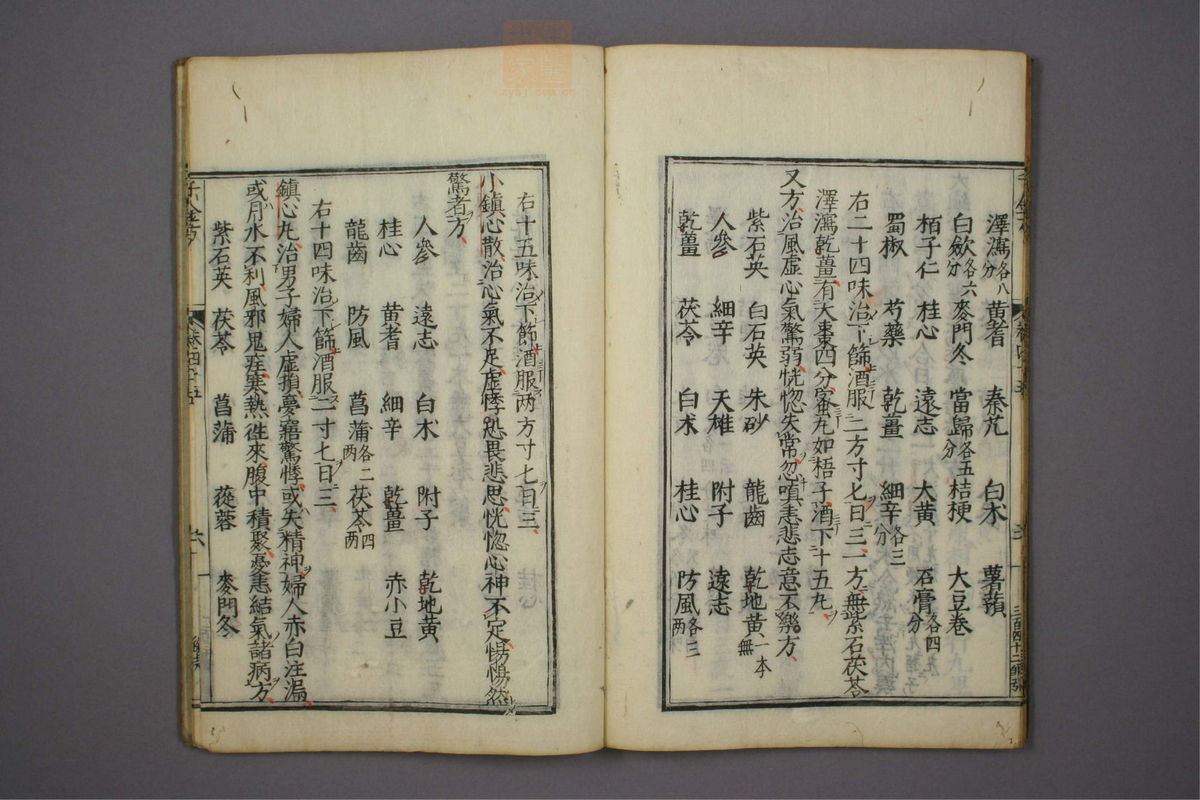 澤瀉各八分 黃耆 秦艽 白朮 薯蕷
白歛各六分 麥門冬 當歸各五分 桔梗 大豆卷
栢子仁 桂心 遠志 大黃 石膏各四分
蜀椒 芍藥 乾薑 細辛各三分
右二十四味治下篩酒服二方寸七日三一方無紫石茯苓
澤瀉乾薑有大棗四分蜜丸如梧子酒下十五丸
又方治風虛心氣驚弱恍惚失常忽嗔恚悲志意不樂方
紫石英 白石英 朱砂 龍齒 乾地黃一本無
人參 細辛 天雄 附子 遠志
乾薑 茯苓 白朮 桂心 防風各三兩
右十五味治下篩酒服两方寸七日三
小鎮心散治心氣不足虛悸恐畏悲思恍惚心神不定惕惕然
驚者方
人參 遠志 白朮 附子 乾地黃
桂心 黃耆 細辛 乾薑 赤小豆
龍齒 防風 菖蒲各二兩 茯苓四兩
右十四味治下篩酒服二寸七日三
鎮心丸治男子婦人虛損夢寤驚悸或失精神婦人赤白注漏
或月水不利風邪鬼疰寒熱往來腹中積聚憂恚結氣諸病方
紫石英 茯苓 菖蒲 蓯蓉 麥門冬